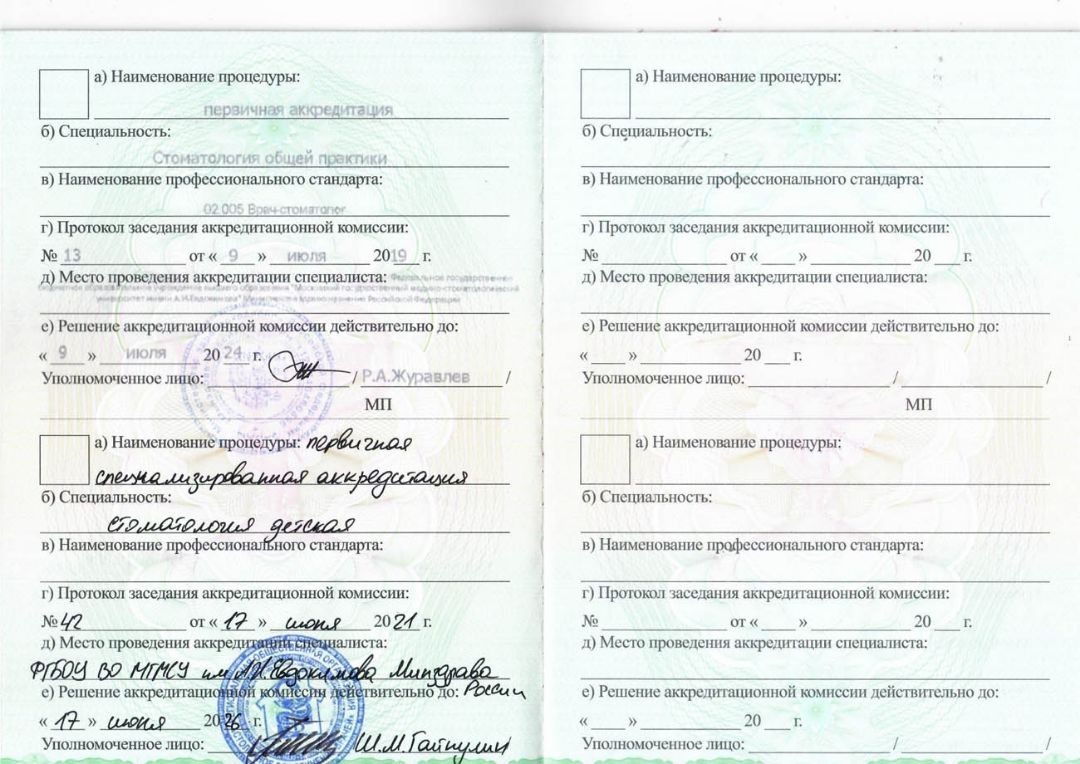 а) Наименование процедуры:
первичная аккредитация
б) Специальность:
Стоматология общей практики
в) Наименование профессионального стандарта:
02.005 Врач-стоматолог
г) Протокол заседания аккредитационной комиссии:
№ 13 от « 9 » июля 2019 г.
д) Место проведения аккредитации специалиста: Федеральное государственное
бюджетное образовательное учреждение высшего образования "Московский государственный медико-стоматологический
университет имени А.И.Евдокимова" Министерства здравоохранения Российской Федерации
е) Решение аккредитационной комиссии действительно до:
« 9 » июля 2024 г.
Уполномоченное лицо: / Р.А.Журавлев /
МП
а) Наименование процедуры: первичная
специализированная аккредитация
б) Специальность:
стоматология детская
в) Наименование профессионального стандарта:
г) Протокол заседания аккредитационной комиссии:
№ 42 от « 17 » июня 2021 г.
д) Место проведения аккредитации специалиста:
ФГБОУ ВО МГМСУ им А.И.Евдокимова Минздрава
е) Решение аккредитационной комиссии действительно до: России
« 17 » июня 2026 г.
Уполномоченное лицо: Ш.М.Гайнулин
а) Наименование процедуры:
б) Специальность:
в) Наименование профессионального стандарта:
г) Протокол заседания аккредитационной комиссии:
№ от « » 20 г.
д) Место проведения аккредитации специалиста:
е) Решение аккредитационной комиссии действительно до:
« » 20 г.
Уполномоченное лицо: / /
МП
а) Наименование процедуры:
б) Специальность:
в) Наименование профессионального стандарта:
г) Протокол заседания аккредитационной комиссии:
№ от « » 20 г.
д) Место проведения аккредитации специалиста:
е) Решение аккредитационной комиссии действительно до:
« » 20 г.
Уполномоченное лицо: / /